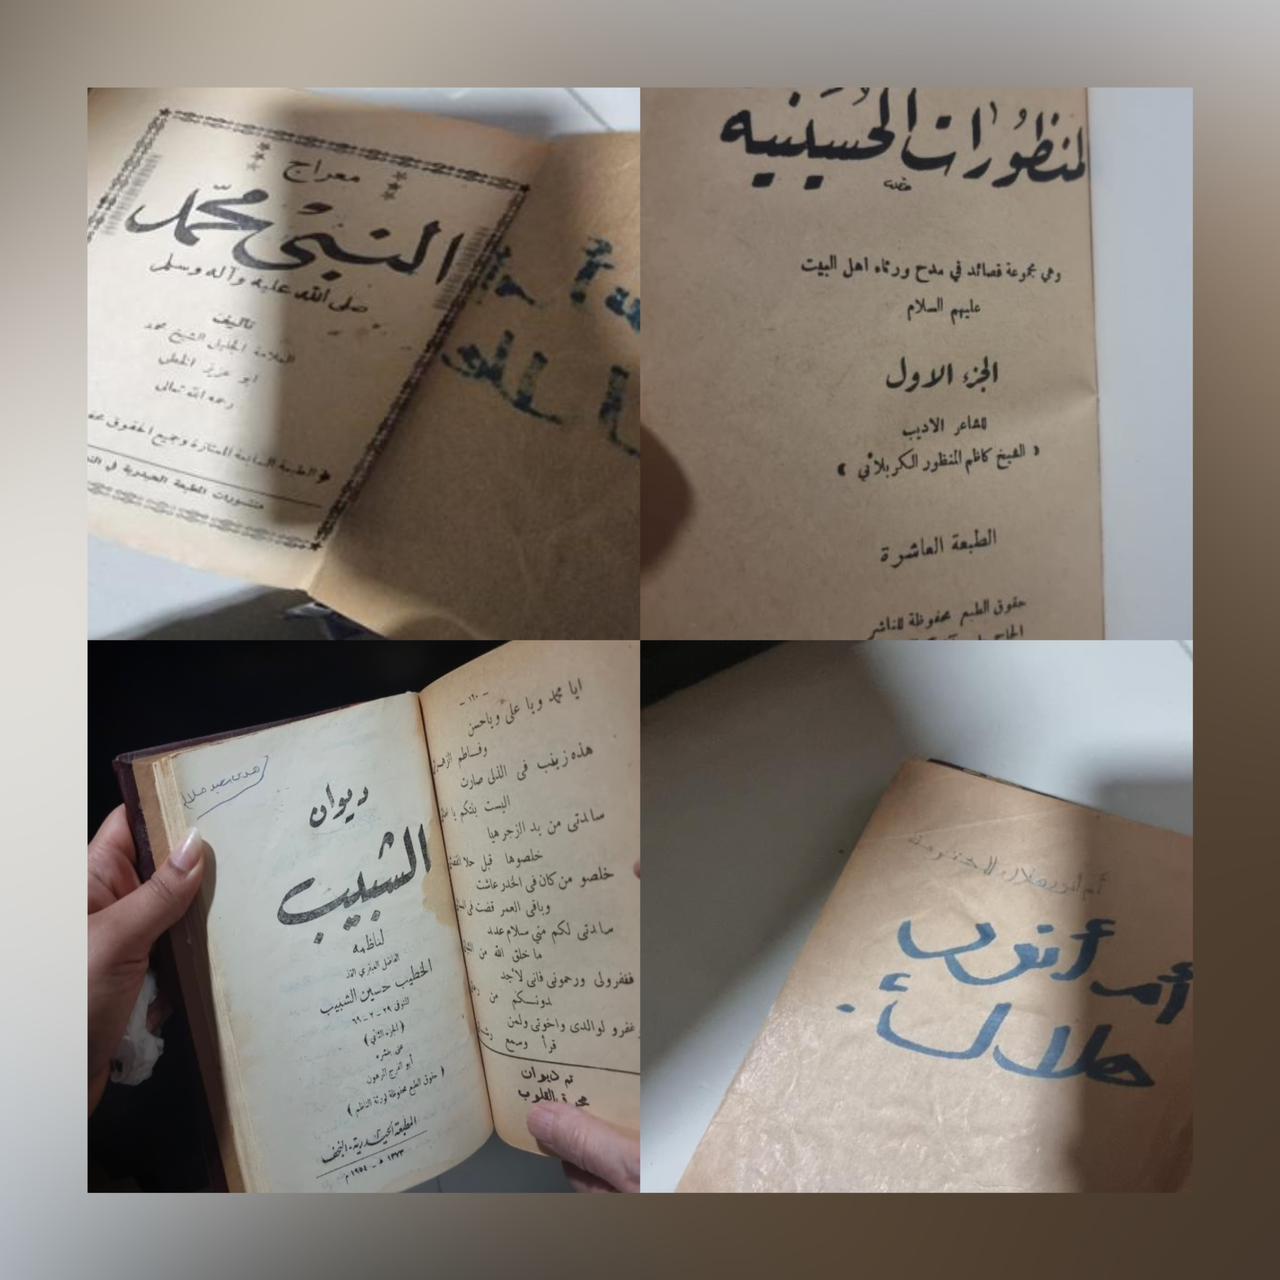 معراج
النبي محمد
صلى الله عليه وآله وسلم
تأليف
العلامة الجليل الشيخ محمد
ابو عزيز الخطي
رحمه الله تعالى
الطبعة السابعة الممتازة وجميع الحقوق
منشورات المطبعة الحيدرية في
المنظورات الحسينيه
وهي مجموعة قصائد في مدح ورثاء اهل البيت
عليهم السلام
الجزء الاول
للشاعر الاديب
« الشيخ كاظم المنظور الكربلائي »
الطبعة العاشرة
حقوق الطبع محفوظة للناشر
ديوان
الشبيب
لناظمه
الفاضل العبقري الفذ
الخطيب حسين الشبيب
المتوفى ٢٩ - ٢ - ٦٩
( الجزء الثاني )
عنى بنشره
أبو الفرج
( حقوق الطبع محفوظة لورثة الناظم )
المطبعة الحيدرية - النجف
١٣٧٣ هـ - ١٩٥٤ م
- ١٦٠ -
ايا محمد ويا علي وياحسن
هذه زينب في الذلي صارت
اليست بنتكم يا
سادتي من يد الزجر هيا
خلصوها قبل
خلصو من كان في الخدر عاشت
وباقي العمر قضت في
سادتي لكم مني سلام عدد
ما خلق الله من
فغفرولي ورحموني فاني لأجد
دونكم من
غفرو لوالدي واخوتي ولمن
قرأ وسمع
تم ديوان
القلوب
أم أنور
هلال